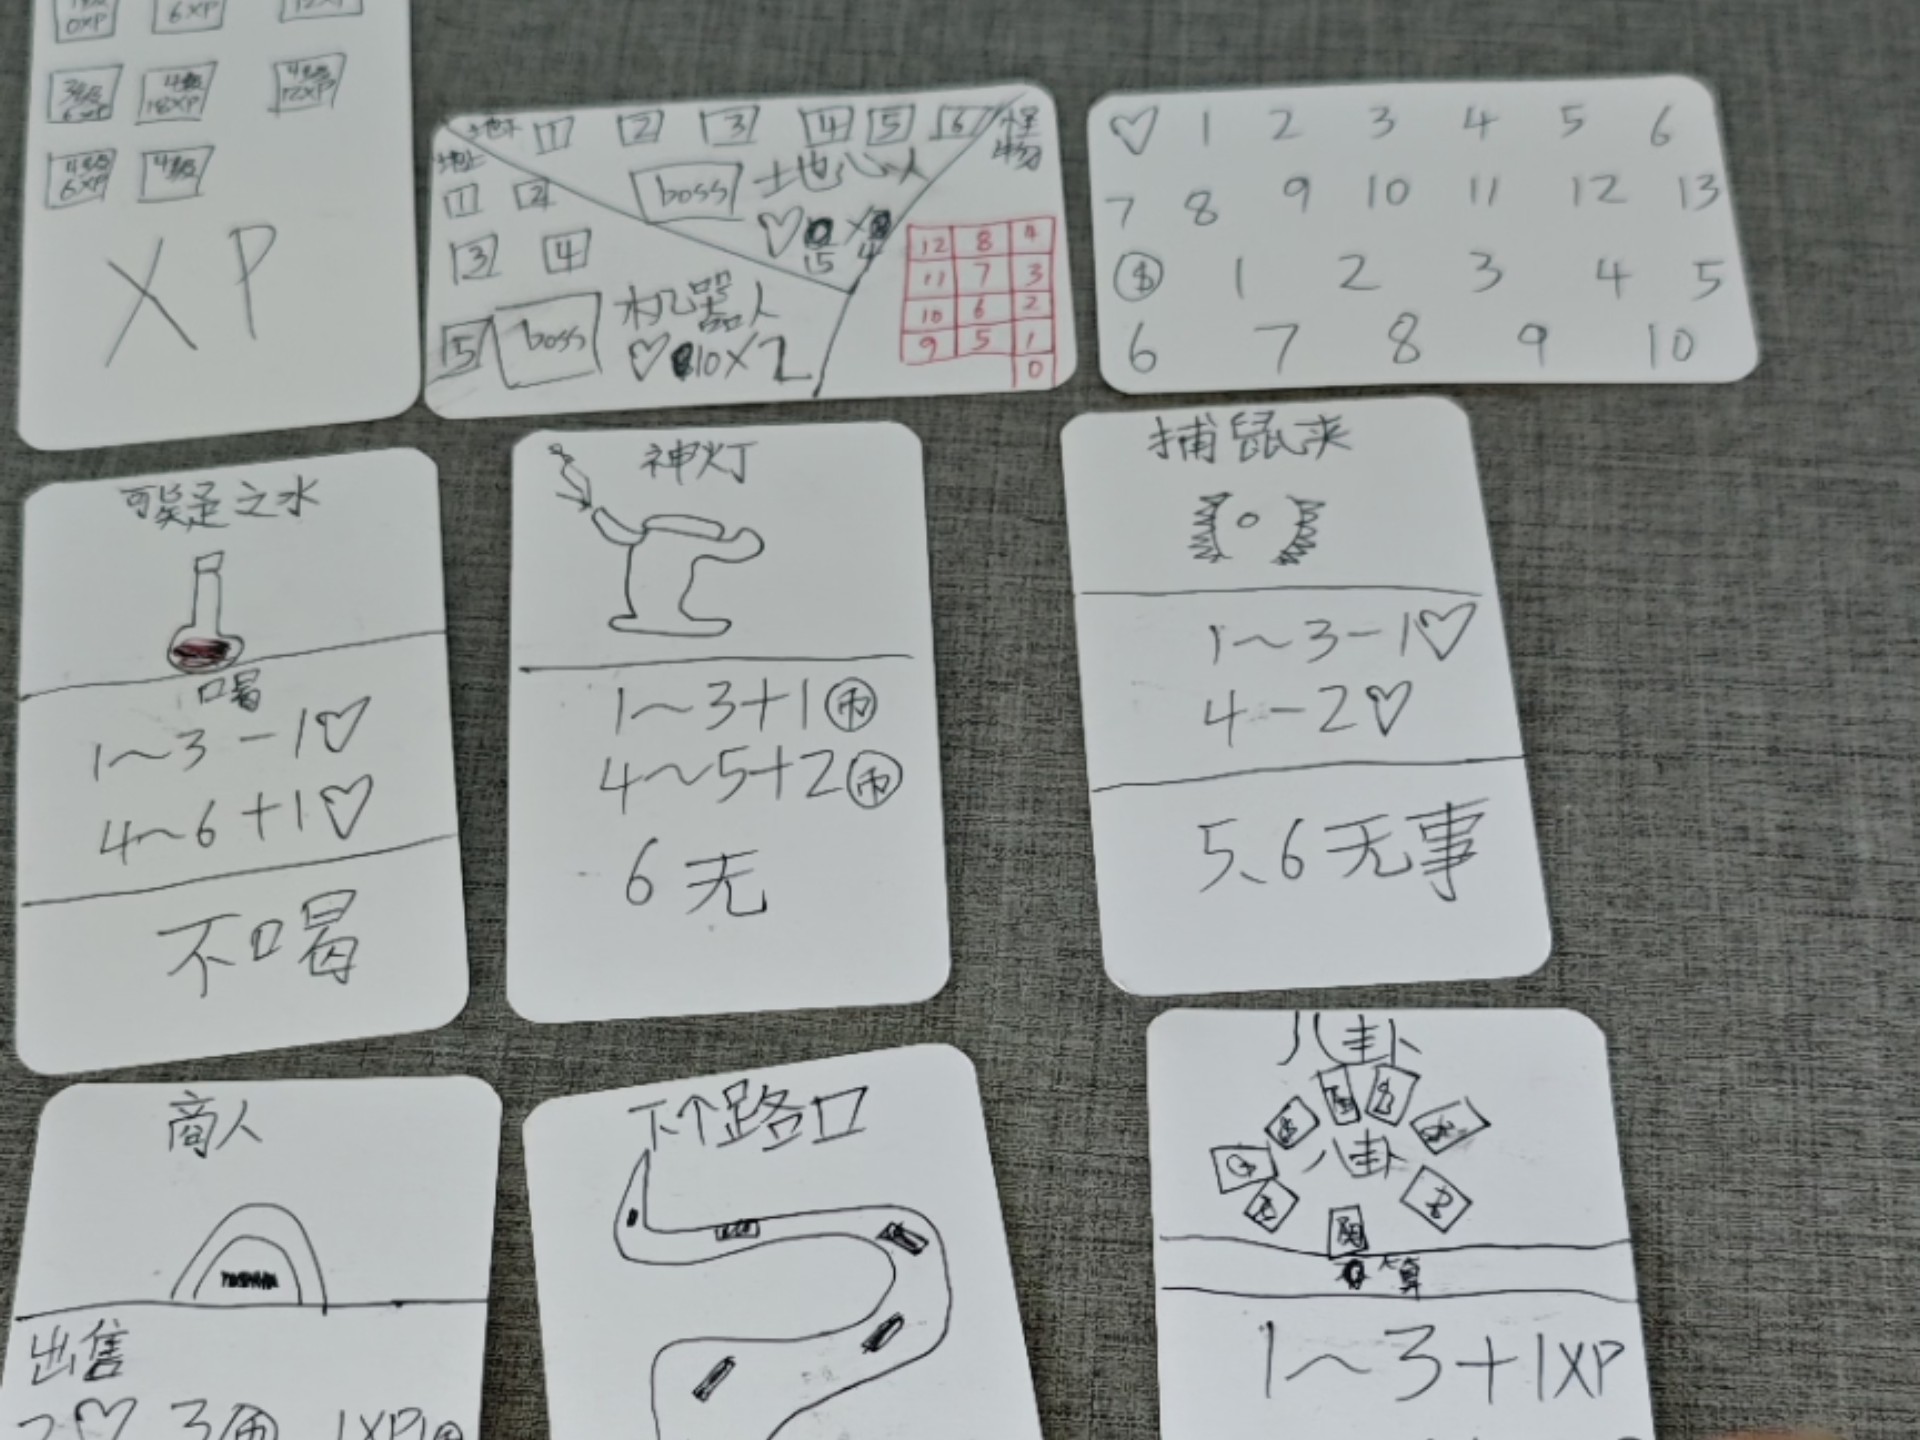 0XP 6XP 12XP
3级 6XP 4级 18XP 4级 12XP
4级 6XP 4级
XP
地下 1 2 3 4 5 6 怪物
地上
1 2
boss 土地心人
♡ 15 × 4
3 4
5 boss 机器人
♡ 10×2
12 8 4
11 7 3
10 6 2
9 5 1
0
♡ 1 2 3 4 5 6
7 8 9 10 11 12 13
$ 1 2 3 4 5
6 7 8 9 10
可疑之水
喝
1~3-1♡
4~6+1♡
不喝
神灯
1~3+1币
4~5+2币
6无
捕鼠夹
1~3-1♡
4-2♡
5、6无事
商人
出售
2♡ 3币 1XP1币
下个路口
八卦
八卦
算
1~3+1XP